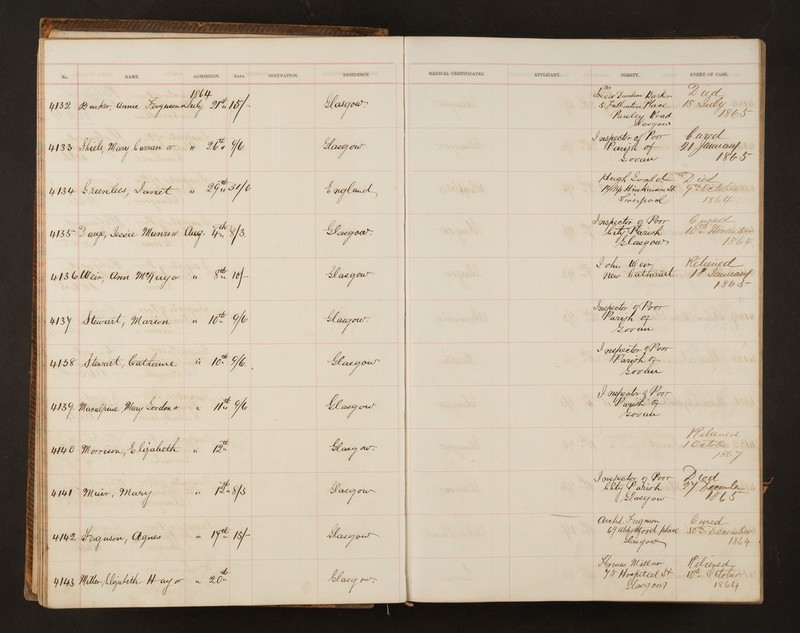 No. NAME. ADMISSION. Rate. OCCUPATION. RESIDENCE. MEDICAL CERTIFICATES. APPLICANT. SURETY. EVENT OF CASE.
1864
4132 Barker, Annie Ferguson July 21st 15/- Glasgow Died
5 Place 18 July
Paisley Road 1865
Glasgow
4133 Shiels, Mary Cowan or " 26th 9/6 Glasgow Inspector of Poor Cured
Parish of 21 January
Govan 1865
4134 Greenlees, Janet " 29th 31/6 England Hugh Died
9th October
Liverpool 1864
4135 Jessie Munro or Aug. 4th 8/3 Glasgow Inspector of Poor Cured
City Parish 16th November
Glasgow 1864
4136 Weir, Ann or " 8th 10/- Glasgow John Weir Relieved
New Cathcart 1st January
1865
4137 Stewart, Marion " 10th 9/6 Glasgow Inspector of Poor
Parish of
Govan
4138 Stewart, Catherine " 10th 9/6 Glasgow Inspector of Poor
Parish of
Govan
4139 Macalpine, Mary Gordon or " 11th 9/6 Glasgow Inspector of Poor
Parish of
Govan
4140 Morrison, Elizabeth " 12th Glasgow Relieved
1 October
1867
4141 Muir, Mary " 12th 8/3 Glasgow Inspector of Poor Died
City Parish 27 December
Glasgow 1865
4142 Ferguson, Agnes " 17th 15/- Glasgow Archd. Ferguson Cured
69 Abbotsford place 30th December
Glasgow 1864
4143 Miller, Elizabeth Hay or " 20th Glasgow Thomas Miller Relieved
75 Hospital St 10th October
Glasgow 1864